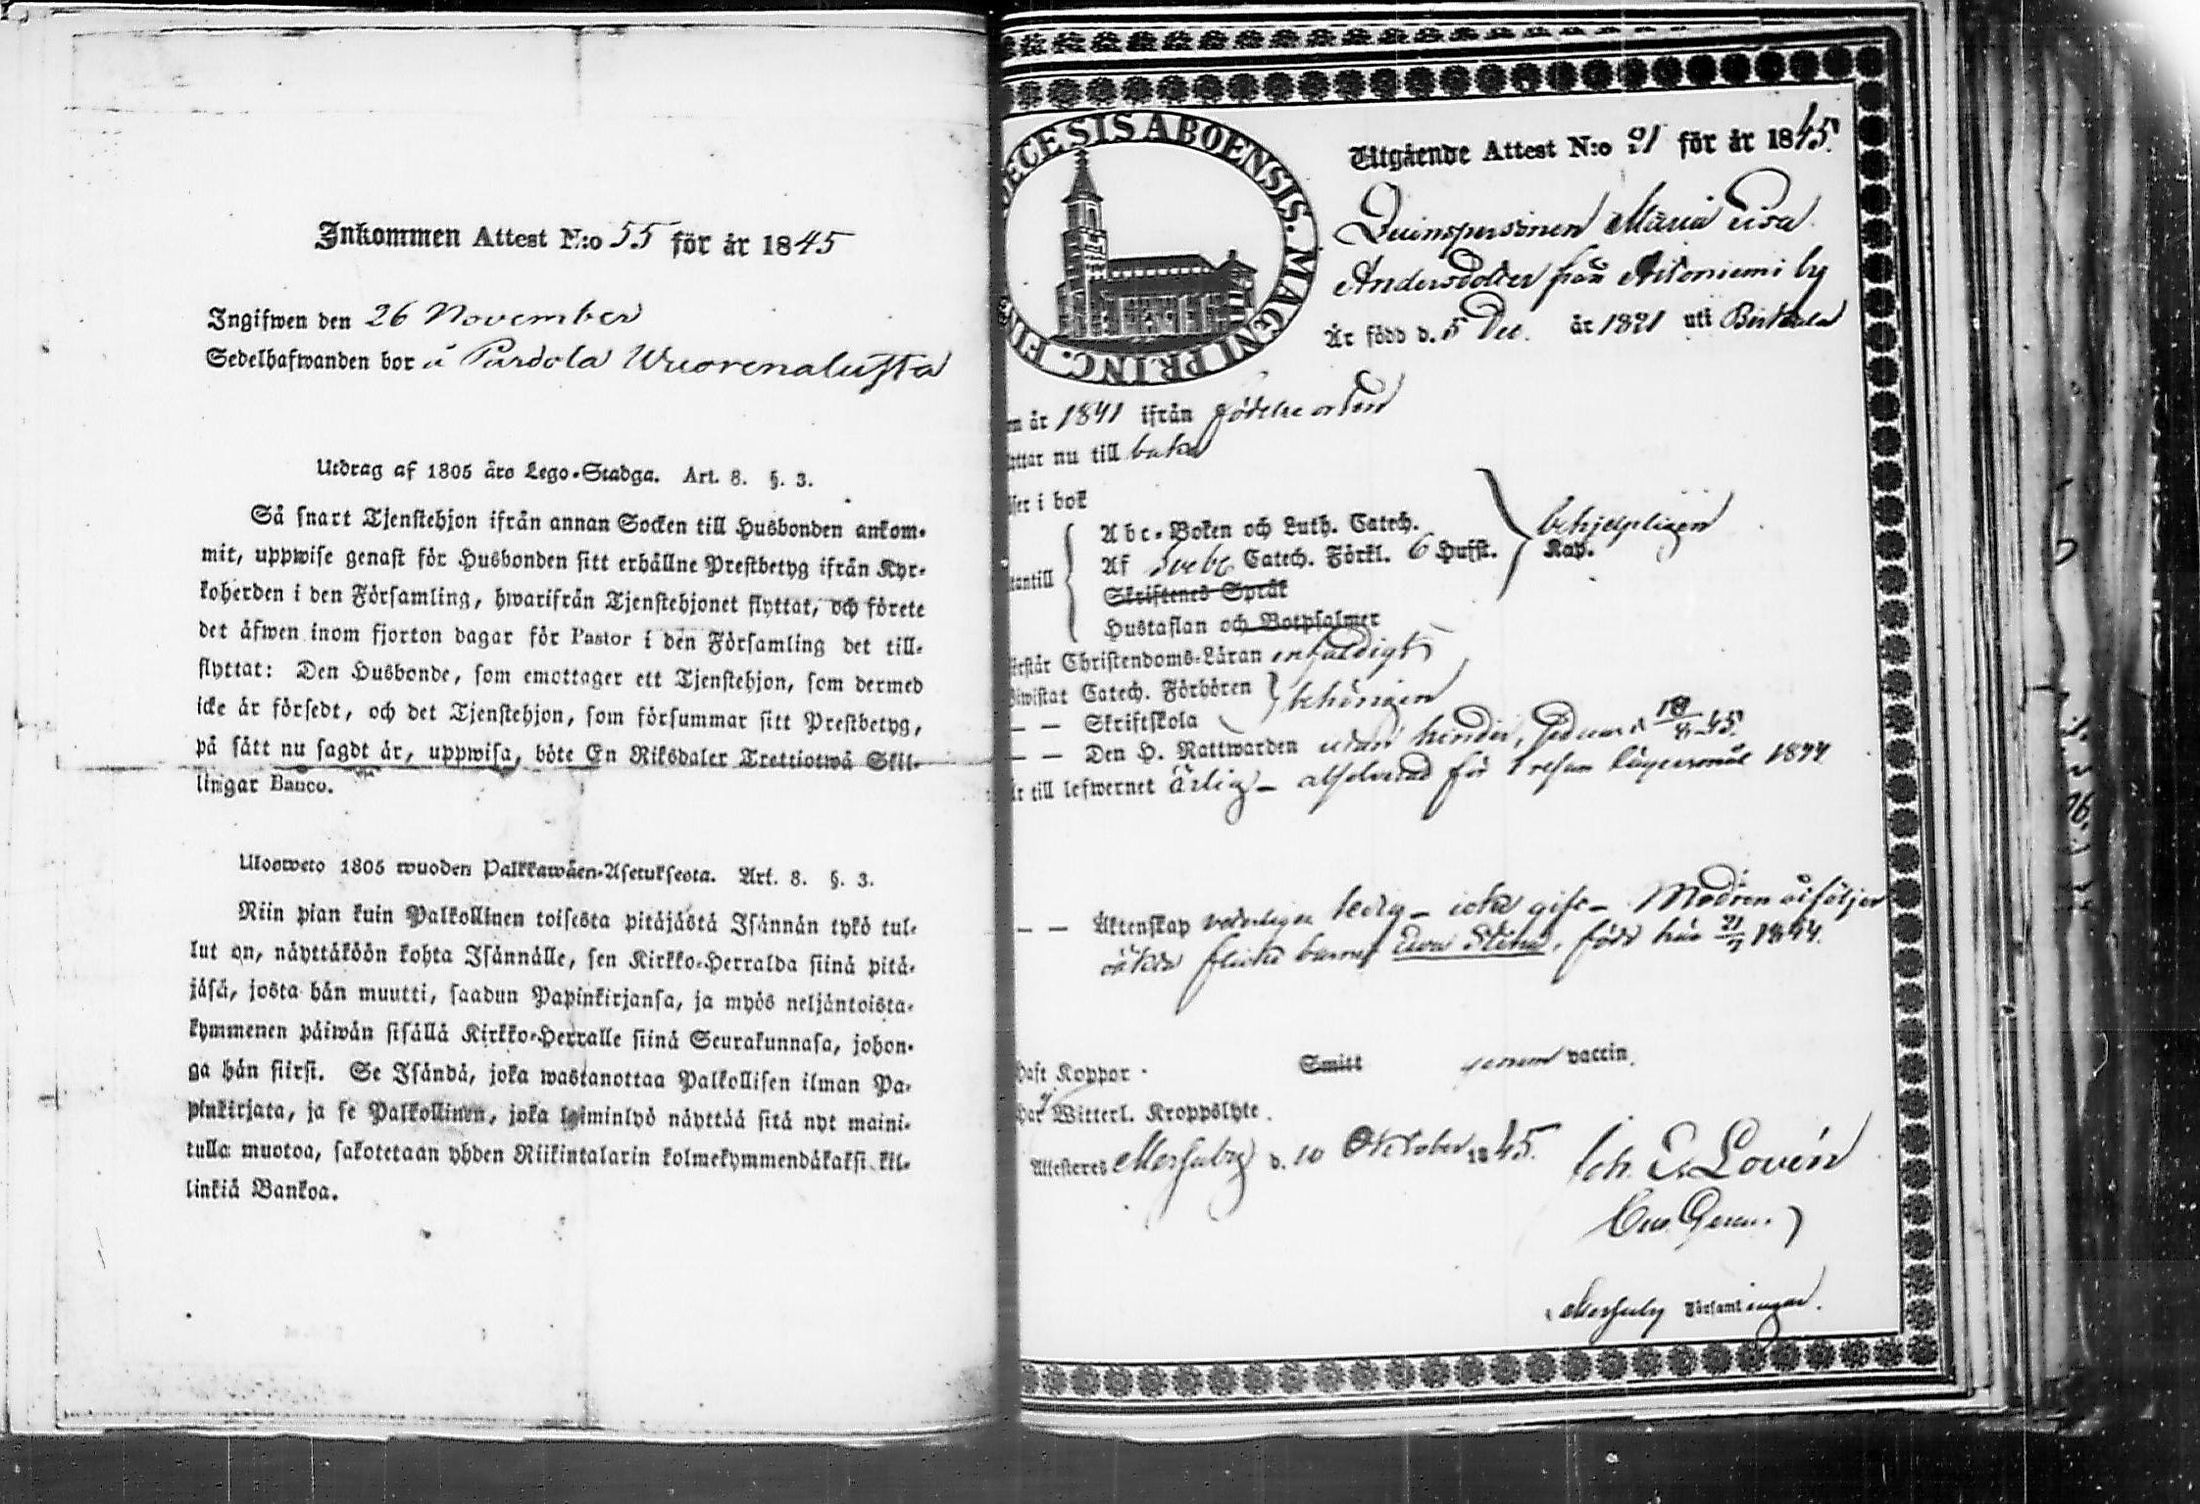 Inkommen Attest N:o 55 för år 1845
Ingifwen den 26 November
Sedelhafwanden bor å Pardola Wuorenalusta
Utdrag af 1805 års Lego-Stadga. Art. 8. §. 3.
Så snart Tjenstehjon ifrån annan Socken till Husbonden ankom-
mit, uppwise genast för Husbonden sitt erhållne Prestbetyg ifrån Kyr-
koherden i den Församling, hwarifrån Tjenstehjonet flyttat, och förete
det äfwen inom fjorton dagar för Pastor i den Församling det till-
flyttat: Den Husbonde, som emottager ett Tjenstehjon, som dermed
icke är försedt, och det Tjenstehjon, som försummar sitt Prestbetyg,
på sätt nu sagdt är, uppwisa, böte En Riksdaler Trettiotwå Skil-
lingar Banco.
Ulosweto 1805 wuoden Palkkawäen-Asetuksesta. Art. 8. §. 3.
Niin pian kuin Palkollinen toisesta pitäjästä Isännän tykö tul-
lut on, näyttäköön kohta Isännälle, sen Kirkko-Herralda siinä pitä-
jäsä, josta hän muutti, saadun Papinkirjansa, ja myös neljäntoista-
kymmenen päiwän sisällä Kirkko-Herralle siinä Seurakunnasa, johon-
ga hän siirsi. Se Isändä, joka wastanottaa Palkollisen ilman Pa-
pinkirjata, ja se Palkollinen, joka laiminlyö näyttää sitä nyt maini-
tulla muotoa, sakotetaan yhden Riikintalarin kolmekymmendäkaksi kil-
linkiä Bankoa.
DIOECESIS ABOENSIS. MAGNI PRINC. FIN
Utgående Attest N:o 91 för år 1845.
Quinspersonen Maria Lisa
Andersdotter från by
Är född d. 5 Dec. år 1821 uti Birkkala
år 1841 ifrån födelseorten
nu till baka
i bok
Abc-Boken och Luth. Catech.
Af Sveb. Catech. Förkl. 6 Hufst. behjelpligen Kap.
Skriftenes Språk
Hustaflan och Botpsalmer
Christendoms-Läran enfaldigt
Catech. Förhören behörigen
— — Skriftskola
— — Den H. Nattwarden utan hinder, sednast 18/8 45.
till lefwernet ärlig — absolverad för 1 resan lägersmål 1844
— — Äktenskap veterligen ledig — icke gift — Modren åtföljer
oäkta flicke barnet Eva Stina, född här 21/7 1844.
haft Koppor Smitt genom vaccin.
har ej Witterl. Kroppslyte.
Attesteras Merjuby d. 10 Oktober 1845. Joh. E. Lovén
Församlingar.